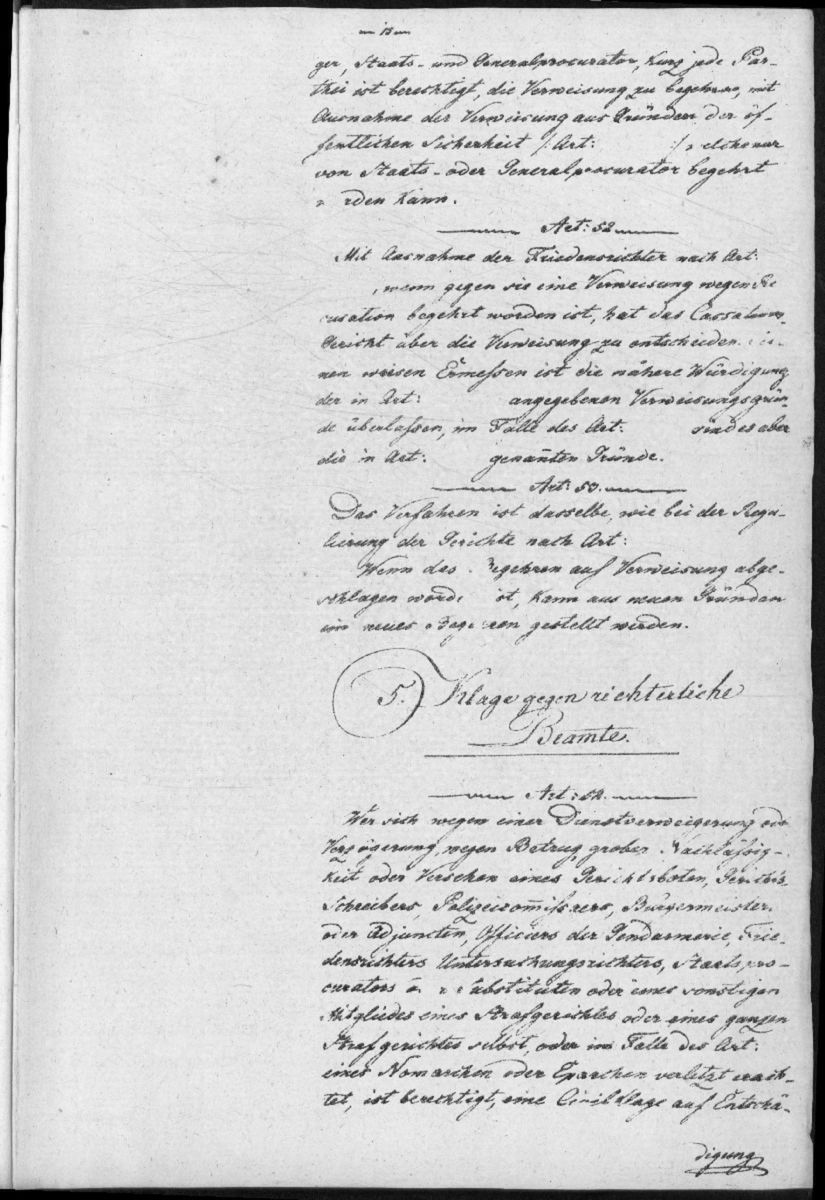 — 13 —
ger, Staats- und Generalprocurator, kurz jede Par-
thei ist berechtigt, die Verweisung zu begehren, mit
Ausnahme der Verweisung aus Gründen der öf-
fentlichen Sicherheit /: Art: :/ welche nur
von Staats- oder Generalprocurator begehrt
rden kann.
Art: 52
Mit Ausnahme der Friedensrichter nach Art:
, wenn gegen sie eine Verweisung wegen Re
cusation begehrt worden ist, hat das Cassations
Gericht über die Verweisung zu entscheiden.
nen weisen Ermessen ist die nähere Würdigung
der in Art: angegebenen Verweisungsgrün-
de überlassen, im Falle des Art: sind es aber
die in Art: genan̅ten Gründe.
Art: 53.
Das Verfahren ist dasselbe, wie bei der Regu-
lierung der Gerichte nach Art:
Wenn das Begehren auf Verweisung abge-
schlagen worde ist, kann aus neuen Gründen
ein neues Begehren gestellt werden.
5. Klage gegen richterliche
Beamte.
Art: 54.
Wer sich wegen einer Dienstverweigerung od
Verzögerung, wegen Betrug, grober Nachlässig-
keit oder Versehen eines Gerichtsboten, Gerichts
Schreibers, Polizeicom̅issärs, Bürgermeisters
oder Adjuncten, Officiers der Gendarmerie, Frie-
densrichters Untersuchungsrichters, Staatspro-
curators Substituten oder eines sonstigen
Mitgliedes eines Strafgerichtes oder eines ganzen
Strafgerichtes selbst, oder im Falle des Art:
eines Nomarchen oder Eparchen verletzt erach-
tet, ist berechtigt, eine Civilklage auf Entschä-
digung